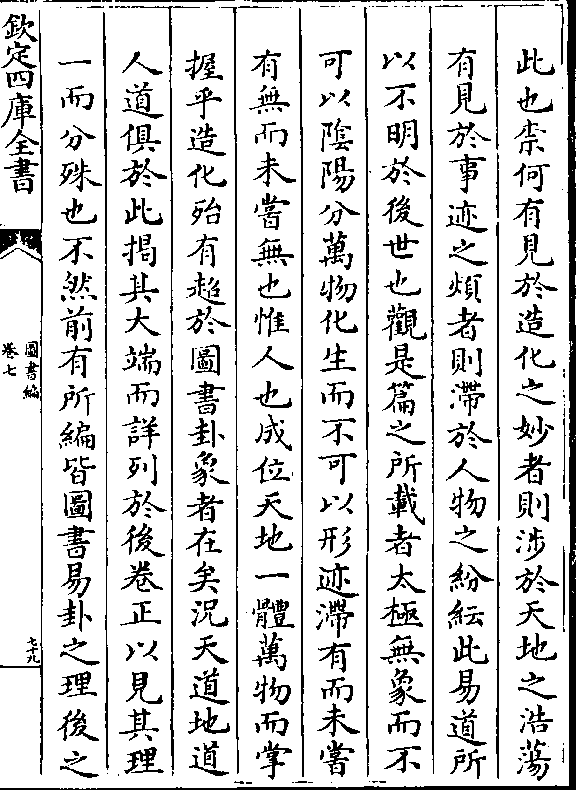 此也柰何有見於造化之妙者則涉於天地之浩蕩
有見於事迹之煩者則滯於人物之紛紜此易道所
以不明於後世也觀是篇之所載者太極無象而不
可以陰陽分萬物化生而不可以形迹滯有而未嘗
有無而未嘗無也惟人也成位天地一體萬物而掌
握乎造化殆有超於圖書卦象者在矣況天道地道
人道俱於此揭其大端而詳列於後卷正以見其理
一而分殊也不然前有所編皆圖書易卦之理後之
欽定四庫全書
圖書編
卷七
七十九